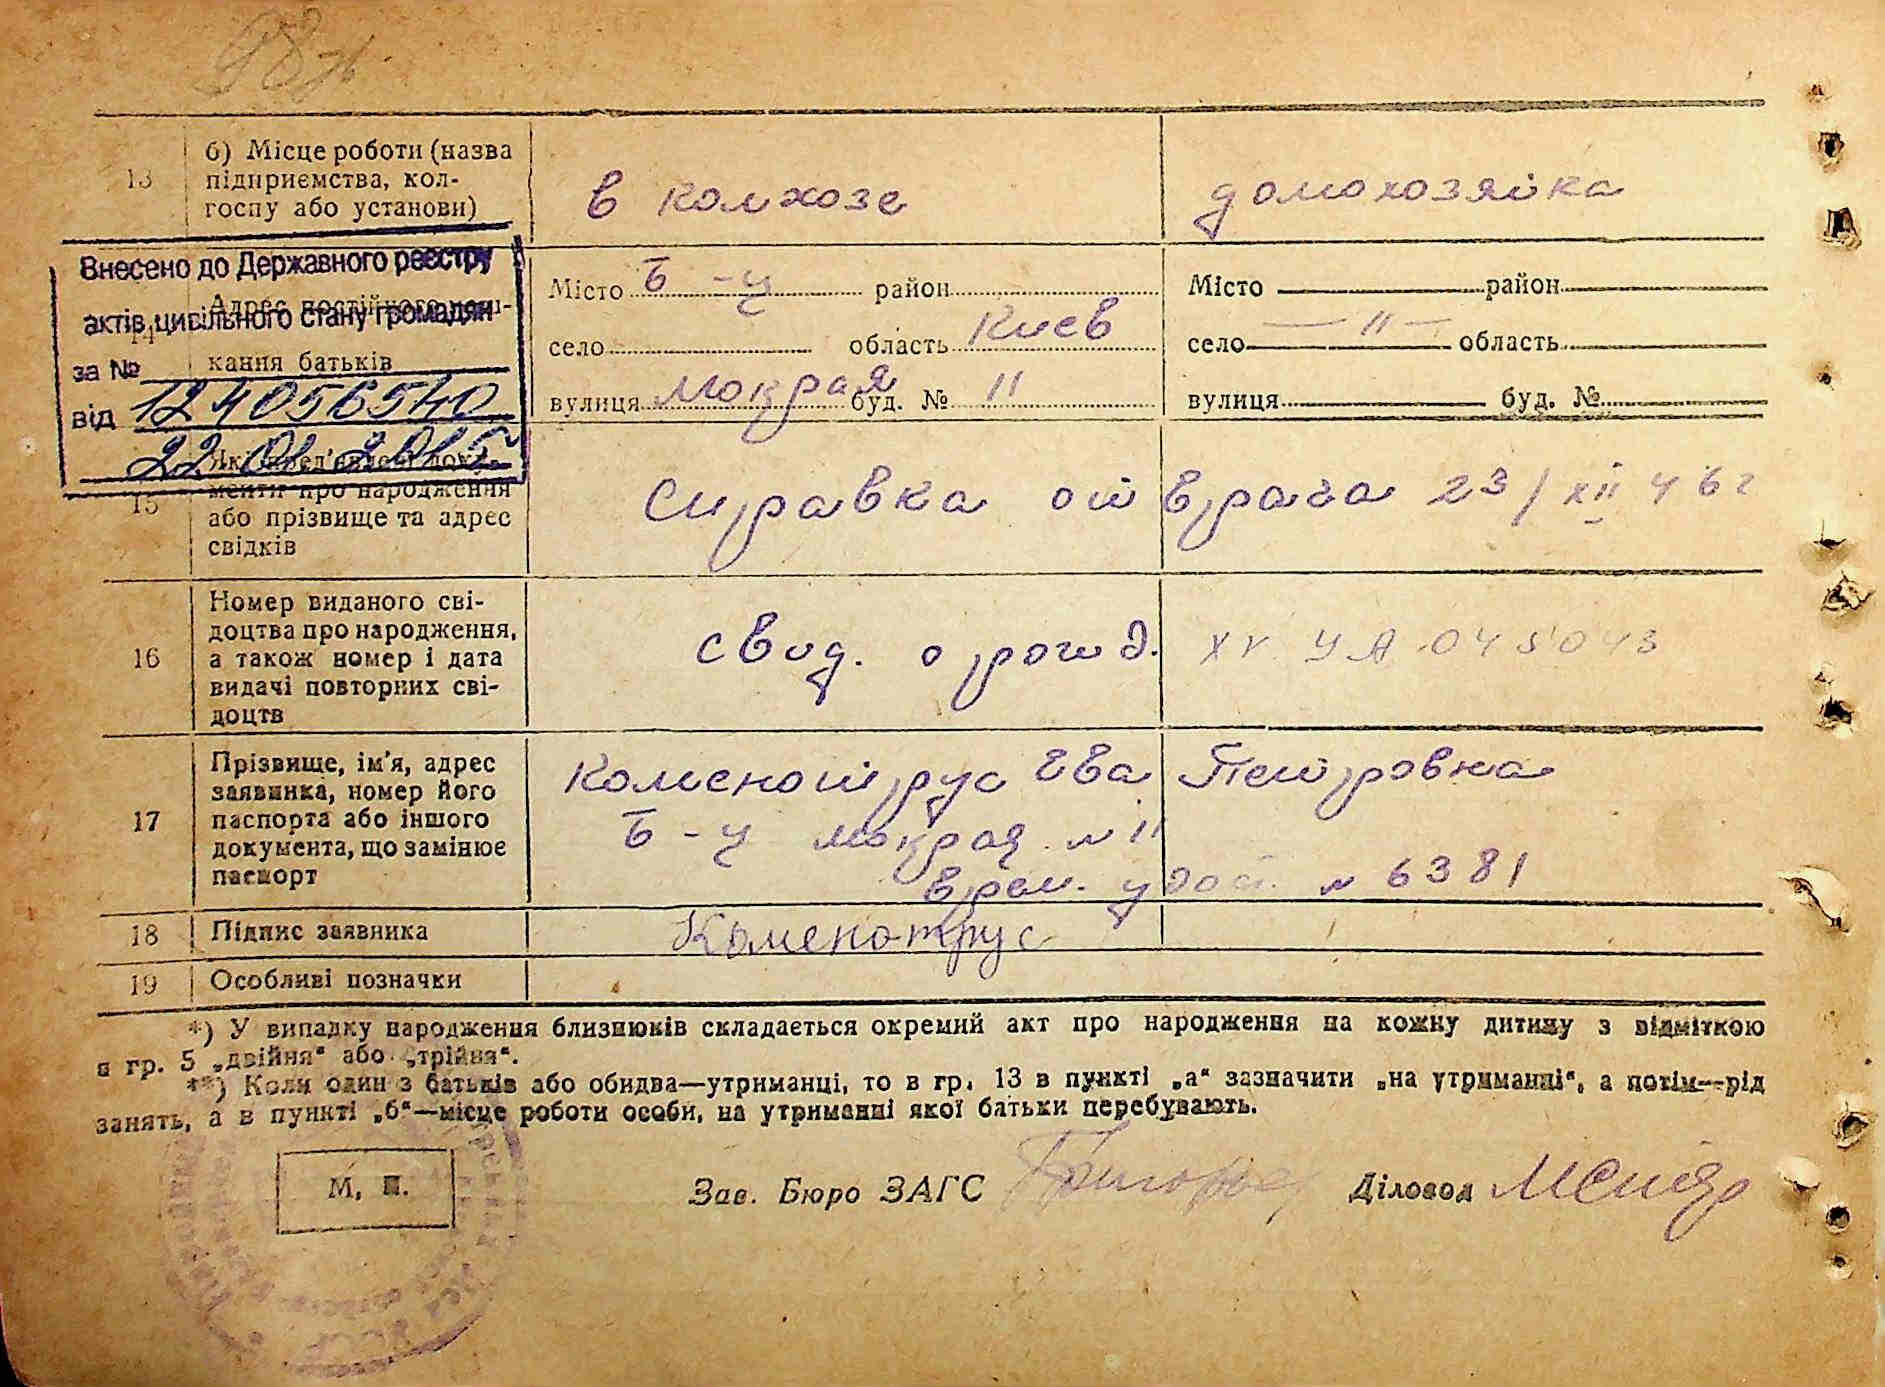 13
б) Місце роботи (назва
підприємства, кол-
госпу або установи)
в колхозе
домохозяйка
Внесено до Державного реєстру
актів цивільного стану громадян
за №
від 124056540
22 01 2015
14
кання батьків
Місто Б-ц район
село область Киев
вулиця мокрая буд. № 11
Місто район
село — " — область
вулиця буд. №
15
менти про народження
або прізвище та адрес
свідків
Справка от врача 23/XII 46 г
16
Номер виданого сві-
доцтва про народження,
а також номер і дата
видачі повторних сві-
доцтв
свид. о рожд. XV УА 045043
17
Прізвище, ім'я, адрес
заявника, номер його
паспорта або іншого
документа, що замінює
паспорт
Каменотрус Ева Петровна
Б-ц мокрая № 11
врем. удост. № 6381
18
Підпис заявника
Каменотрус
19
Особливі позначки
*) У випадку народження близнюків складається окремий акт про народження на кожну дитину з відміткою
в гр. 5 „двійня“ або „трійня“.
**) Коли один з батьків або обидва—утриманці, то в гр. 13 в пункті „а“ зазначити „на утриманні“, а потім—рід
занять, а в пункті „б“—місце роботи особи, на утриманні якої батьки перебувають.
М. П.
Зав. Бюро ЗАГС
Діловод